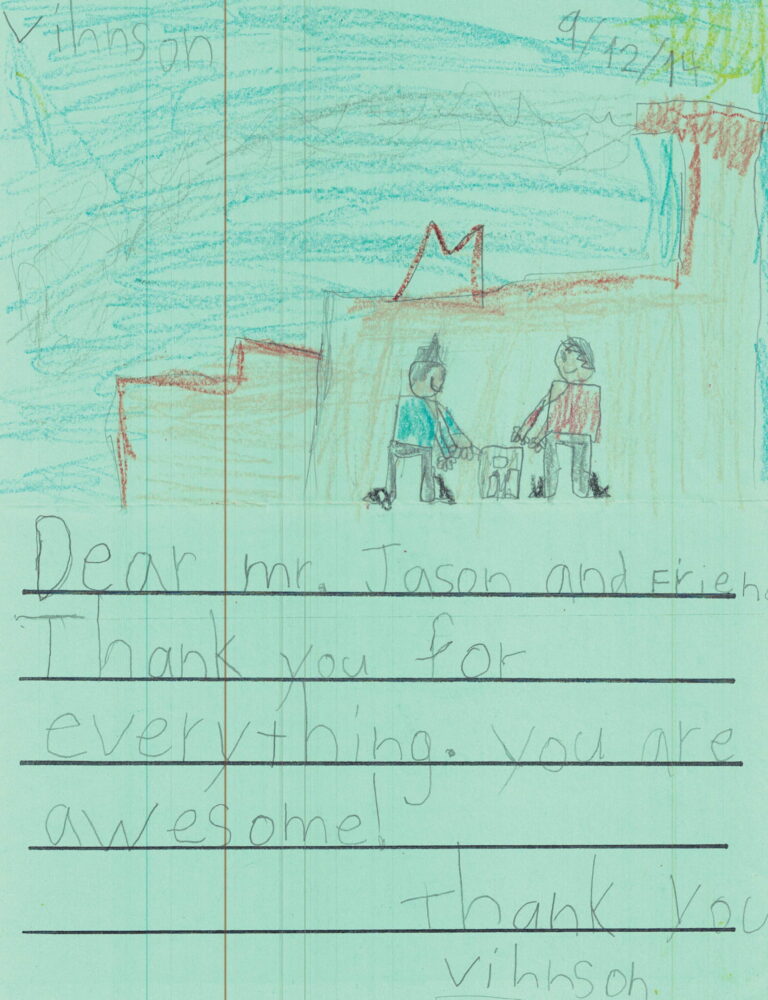 Vihnson
9/12/14
M
Dear mr. Jason and Frien
Thank you for
everything. you are
awesome!
Thank you
Vihnson.